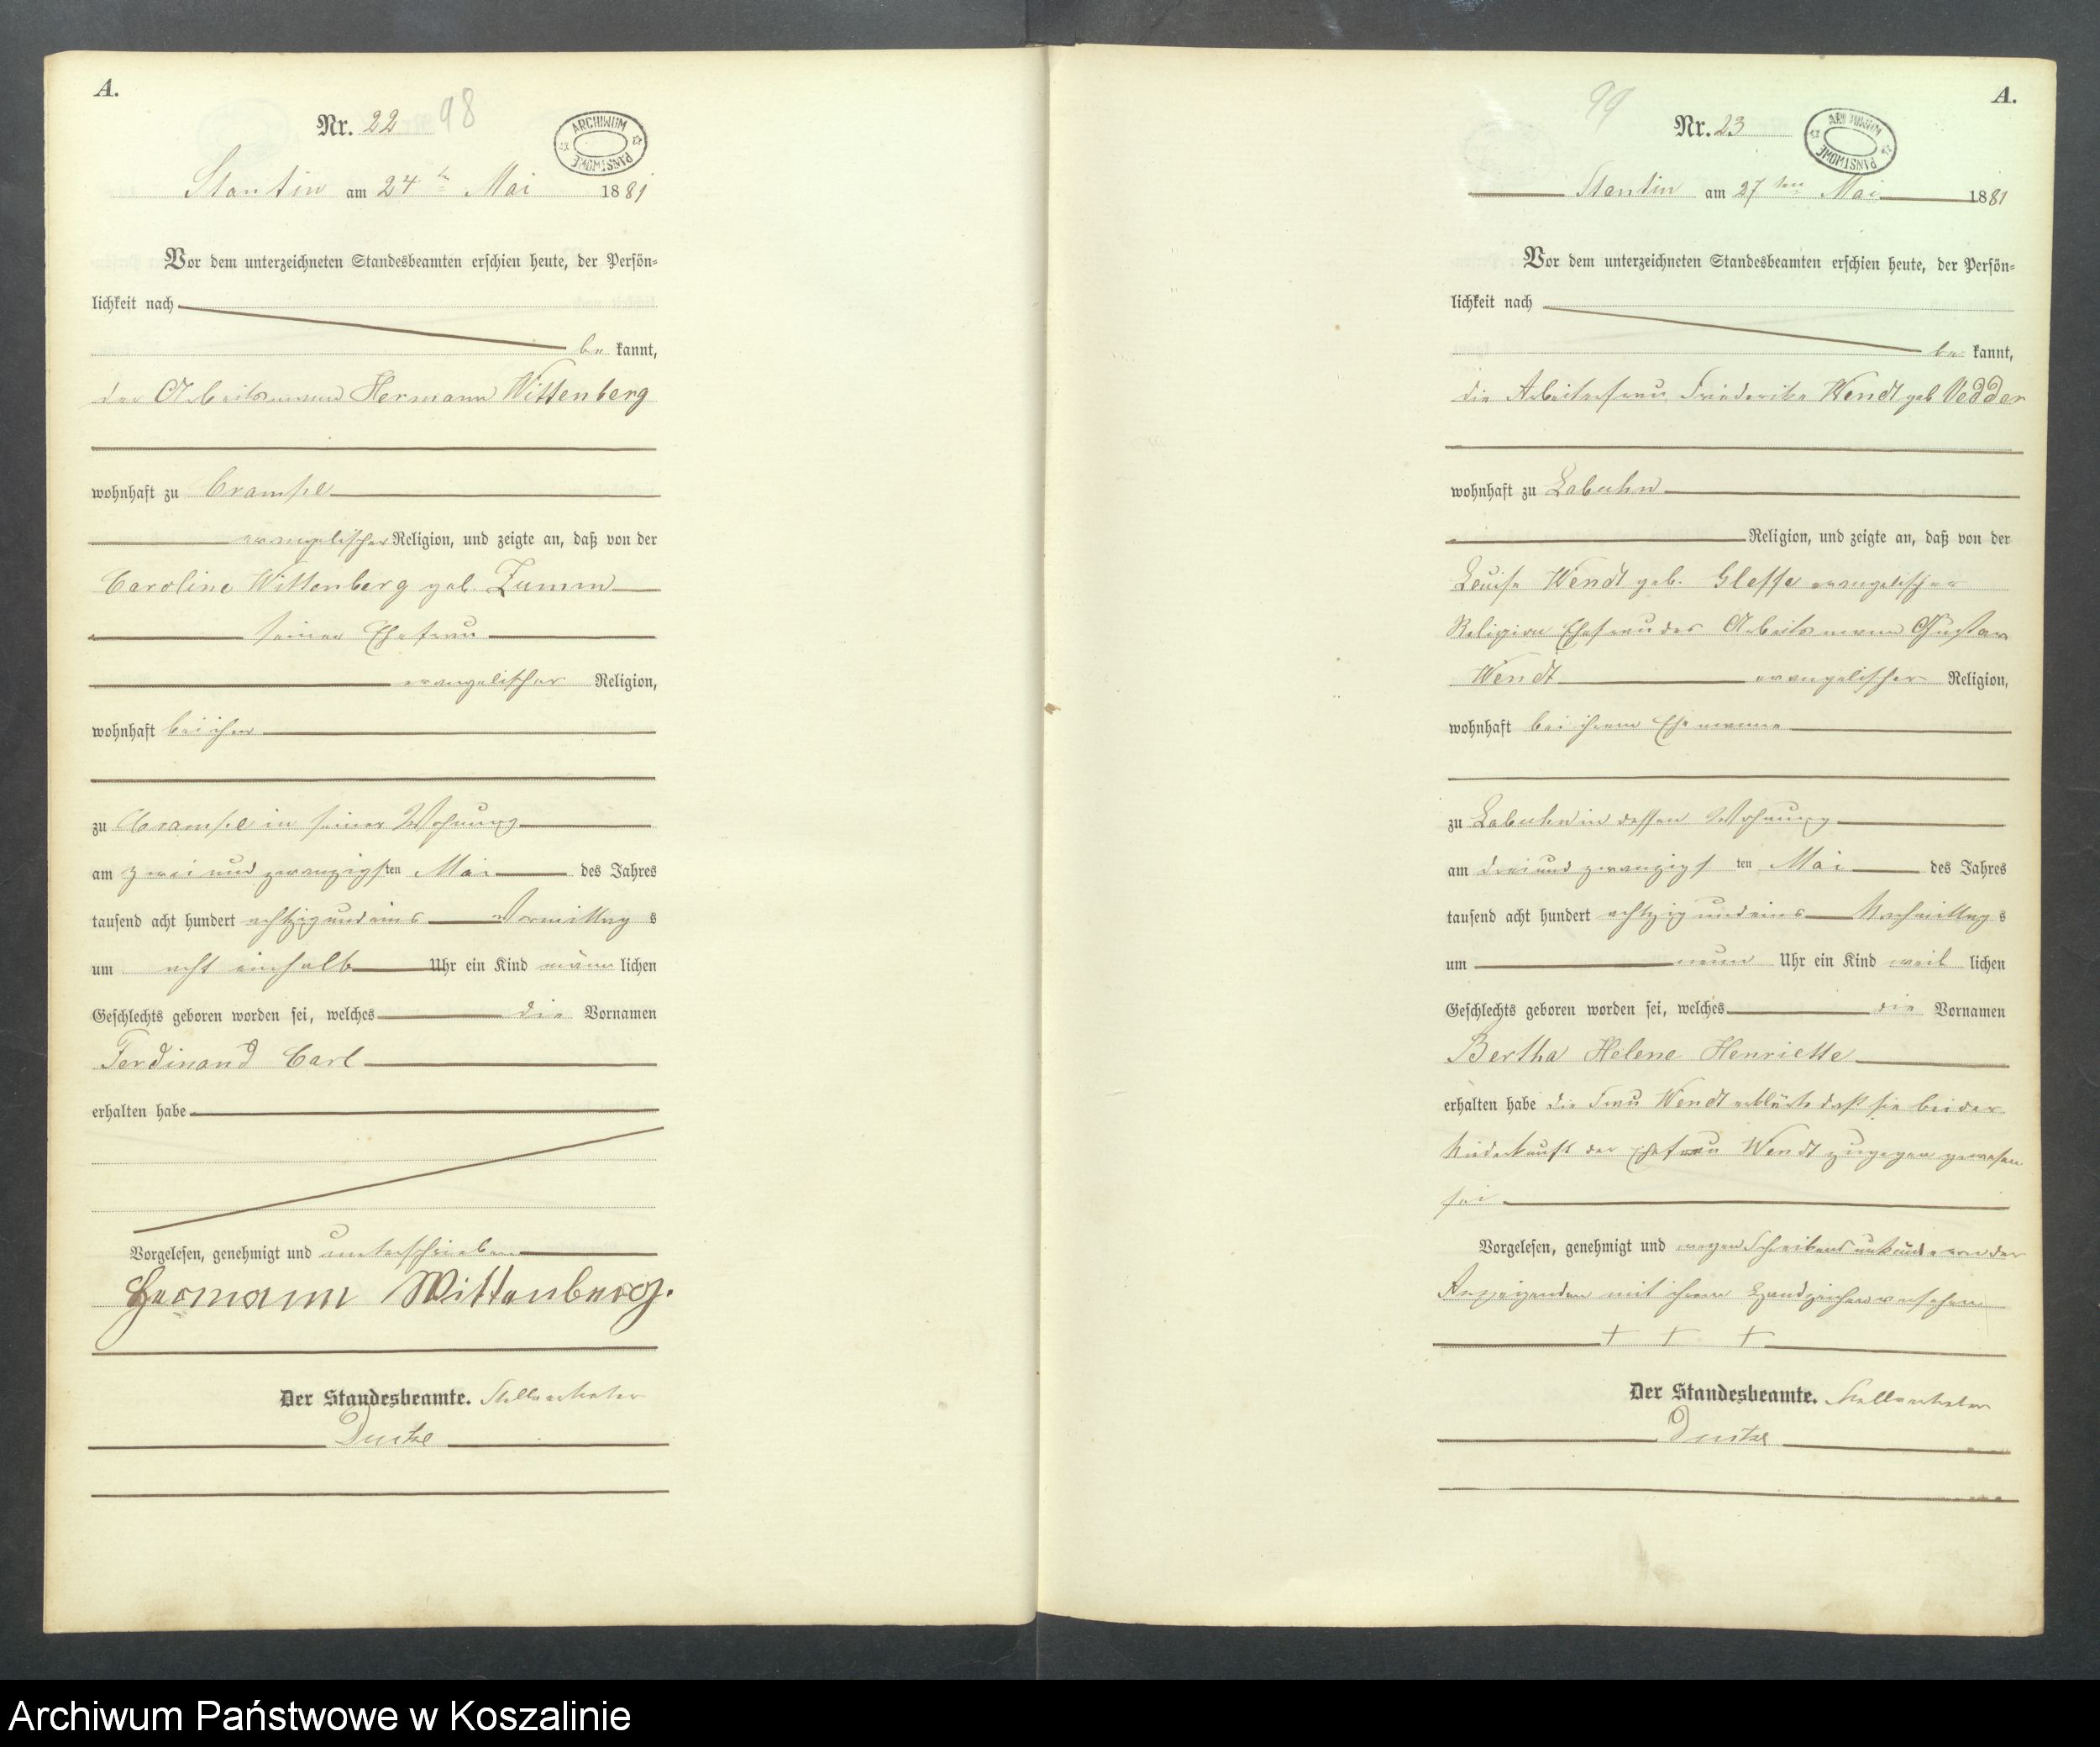 A.
Nr. 22 98
ARCHIWUM PAŃSTWOWE
Stantin am 24ten Mai 1881
Vor dem unterzeichneten Standesbeamten erschien heute, der Persön-
lichkeit nach
be kannt,
der Arbeitsmann Hermann Wittenberg
wohnhaft zu Crampe
evangelischer Religion, und zeigte an, daß von der
Caroline Wittenberg geb. Zumm
seiner Ehefrau
evangelischer Religion,
wohnhaft bei ihm
zu Crampe in seiner Wohnung
am zwei und zwanzigsten Mai des Jahres
tausend acht hundert achtzig und eins Vormittag s
um acht einhalb Uhr ein Kind männ lichen
Geschlechts geboren worden sei, welches die Vornamen
Ferdinand Carl
erhalten habe
Vorgelesen, genehmigt und unterschrieben
Hermann Wittenberg.
Der Standesbeamte. Stellvertreter
A.
99
Nr. 23
ARCHIWUM PAŃSTWOWE
Stantin am 27ten Mai 1881
Vor dem unterzeichneten Standesbeamten erschien heute, der Persön-
lichkeit nach
be kannt,
die Arbeiterfrau Friederike Wendt geb Vedder
wohnhaft zu Labuhn
Religion, und zeigte an, daß von der
Louise Wendt geb. evangelischer
Religion Ehefrau des Arbeitsmann Gustav
Wendt evangelischer Religion,
wohnhaft bei ihrem Ehemanne
zu Labuhn in dessen Wohnung
am drei und zwanzigs ten Mai des Jahres
tausend acht hundert achtzig und eins Nachmittag s
um neun Uhr ein Kind weib lichen
Geschlechts geboren worden sei, welches die Vornamen
Bertha Helene Henriette
erhalten habe die Frau Wendt erklärte daß sie bei der
Niederkunft der Ehefrau Wendt zugegen gewesen
sei
Vorgelesen, genehmigt und wegen Schreibensunkunde von der
Anzeigenden mit ihrem Handzeichen versehen
+ + +
Der Standesbeamte. Stellvertreter
Archiwum Państwowe w Koszalinie